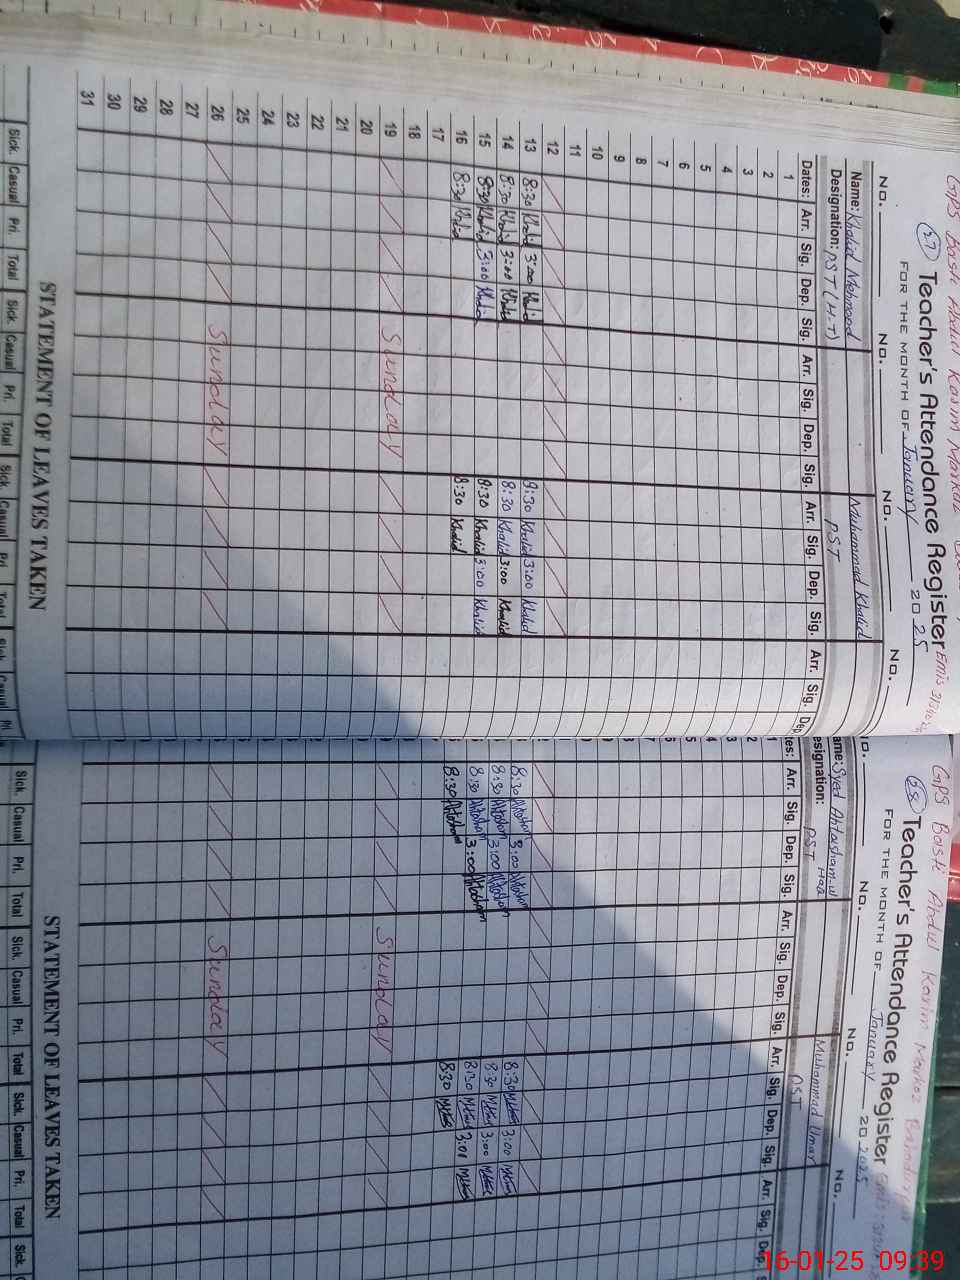 GPS Basti Abdul Karim Markaz
27 Teacher's Attendance Register Emis
FOR THE MONTH OF January 2025
No. No. No. No.
Name: Khalid Mehmood Muhammad Khalid
Designation: PST (H-T) PST
Dates: Arr. Sig. Dep. Sig. Arr. Sig. Dep. Sig. Arr. Sig. Dep. Sig. Arr. Sig. Dep
1
2
3
4
5
6
7
8
9
10
11
12
13 8:30 Khalid 3:00 Khalid 8:30 Khalid 3:00 Khalid
14 8:30 Khalid 3:00 Khalid 8:30 Khalid 3:00 Khalid
15 8:30 Khalid 3:00 Khalid 8:30 Khalid 3:00 Khalid
16 8:30 Khalid 8:30 Khalid
17
18
19 Sunday
20
21
22
23
24
25
26 Sunday
27
28
29
30
31
STATEMENT OF LEAVES TAKEN
Sick. Casual Pri. Total Sick. Casual Pri. Total Sick. Casual Pri Total Sick. Casual Pri
GPS Basti Abdul Karim Markaz
28 Teacher's Attendance Register Emis:
FOR THE MONTH OF January 20 2025
o. No. No. No.
ame: Syed Ahtasham-ul Haq Muhammad Umar
esignation: PST PST
tes: Arr. Sig. Dep. Sig. Arr. Sig. Dep. Sig. Arr. Sig. Dep. Sig. Arr. Sig. Dep.
8:30 Ahtasham 3:00 Ahtasham 8:30 3:00
8:30 Ahtasham 3:00 Ahtasham 8:30 3:00
8:30 Ahtasham 3:00 Ahtasham 8:30 3:00
8:30 Ahtasham 8:30
Sunday
Sunday
STATEMENT OF LEAVES TAKEN
Sick. Casual Pri. Total Sick. Casual Pri. Total Sick. Casual Pri. Total Sick.
16-01-25 09:39